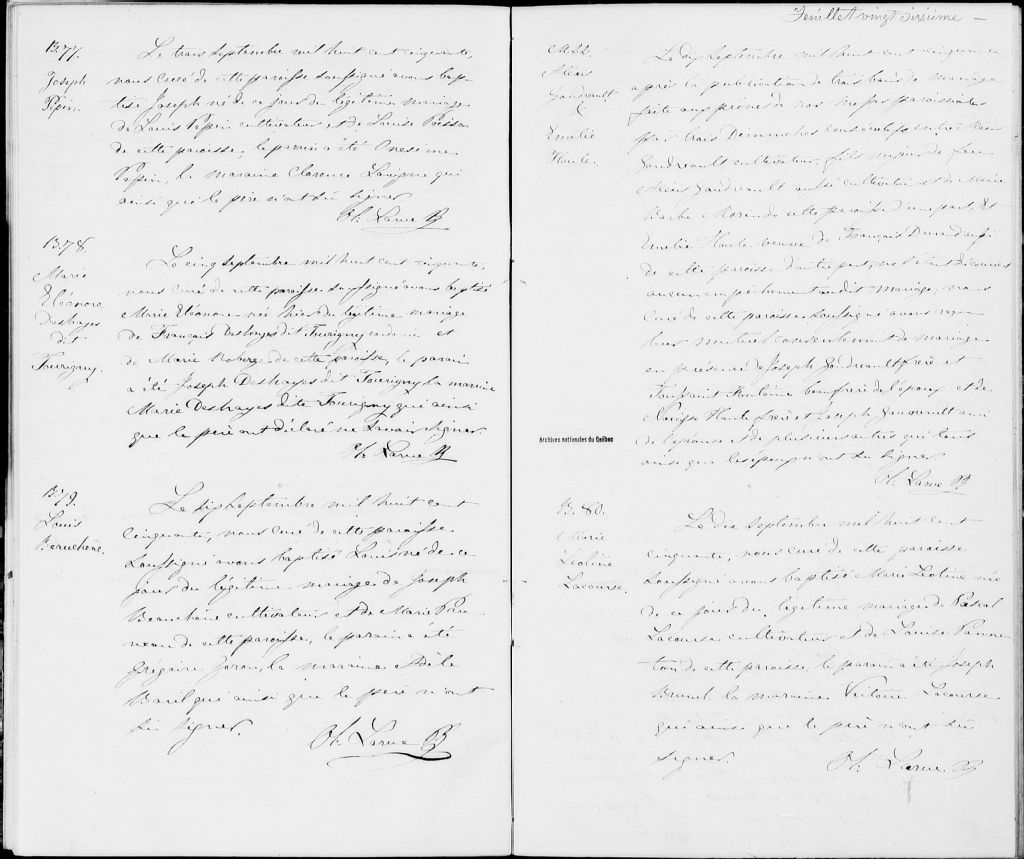 B.77.
Joseph
Pepin.
Le trois Septembre mil huit cent cinquante,
nous curé de cette paroisse soussigné avons bap-
tisé Joseph né de ce jour du légitime mariage
de Louis Pepin cultivateur et de Louise Poisson
de cette paroisse, le parrain a été Onesime
Pepin, la maraine Clarence Lavigne qui
ainsi que le père n'ont su signer
Ch. Larue
B.78.
Marie
Eléonore
Deshayes
dit
Tourigny.
Le cinq Septembre mil huit cent cinquante,
nous curé de cette paroisse soussigné avons baptisé
Marie Eléonore née hier du légitime mariage
de François Deshayes dit Tourigny et
de Marie Roberge de cette paroisse, le parain
a été Joseph Deshayes dit Tourigny la maraine
Marie Deshayes dite Tourigny qui ainsi
que le père ont déclaré ne savoir signer.
Ch. Larue
B.79.
Louis
Beauchène.
Le dix Septembre mil huit cent
cinquante, nous curé de cette paroisse
soussigné avons baptisé Louis né de ce
jour du légitime mariage de Joseph
Beauchène cultivateur et de Marie Pru
neau de cette paroisse, le parain a été
Grégoire la maraine Adèle
Baril qui ainsi que le père n'ont
su signer.
Ch. Larue
Feuillet vingt sixième —
Gaudreault
&
Emelie
Houle.
Le dix Septembre mil huit cent cinquante
après la publication de trois bans de mariage
faite aux prônes de nos messes paroissiales
par trois Dimanches consécutifs entre Alexis
Gaudreault cultivateur, fils majeur de feu
Alexis Gaudreault aussi cultivateur et de Marie
Barbe Morin de cette paroisse d'une part, et
Emelie Houle veuve de François Durand aussi
de cette paroisse d'autre part, ne s'étant découvert
aucun empêchement au dit mariage, nous
curé de cette paroisse soussigné avons reçu
leur mutuel consentement de mariage
en présence de Joseph Gaudreault frère et
Toussaint Fontaine beaufrère de l'époux et de
Narcisse Houle frère et Joseph Gaudreault ami
de l'épouse et de plusieurs autres qui tous
ainsi que les époux n'ont su signer
Ch. Larue
Archives nationales du Québec
B. 80.
Marie
Léotine
Lacourse.
Le dix Septembre mil huit cent
cinquante, nous curé de cette paroisse
soussigné avons baptisé Marie Léotine née
de ce jour du légitime mariage de Pascal
Lacourse cultivateur et de Louise Panne
ton de cette paroisse, le parain a été Joseph
Brunel la maraine Victoire Lacourse
qui ainsi que le père n'ont su
signer.
Ch. Larue